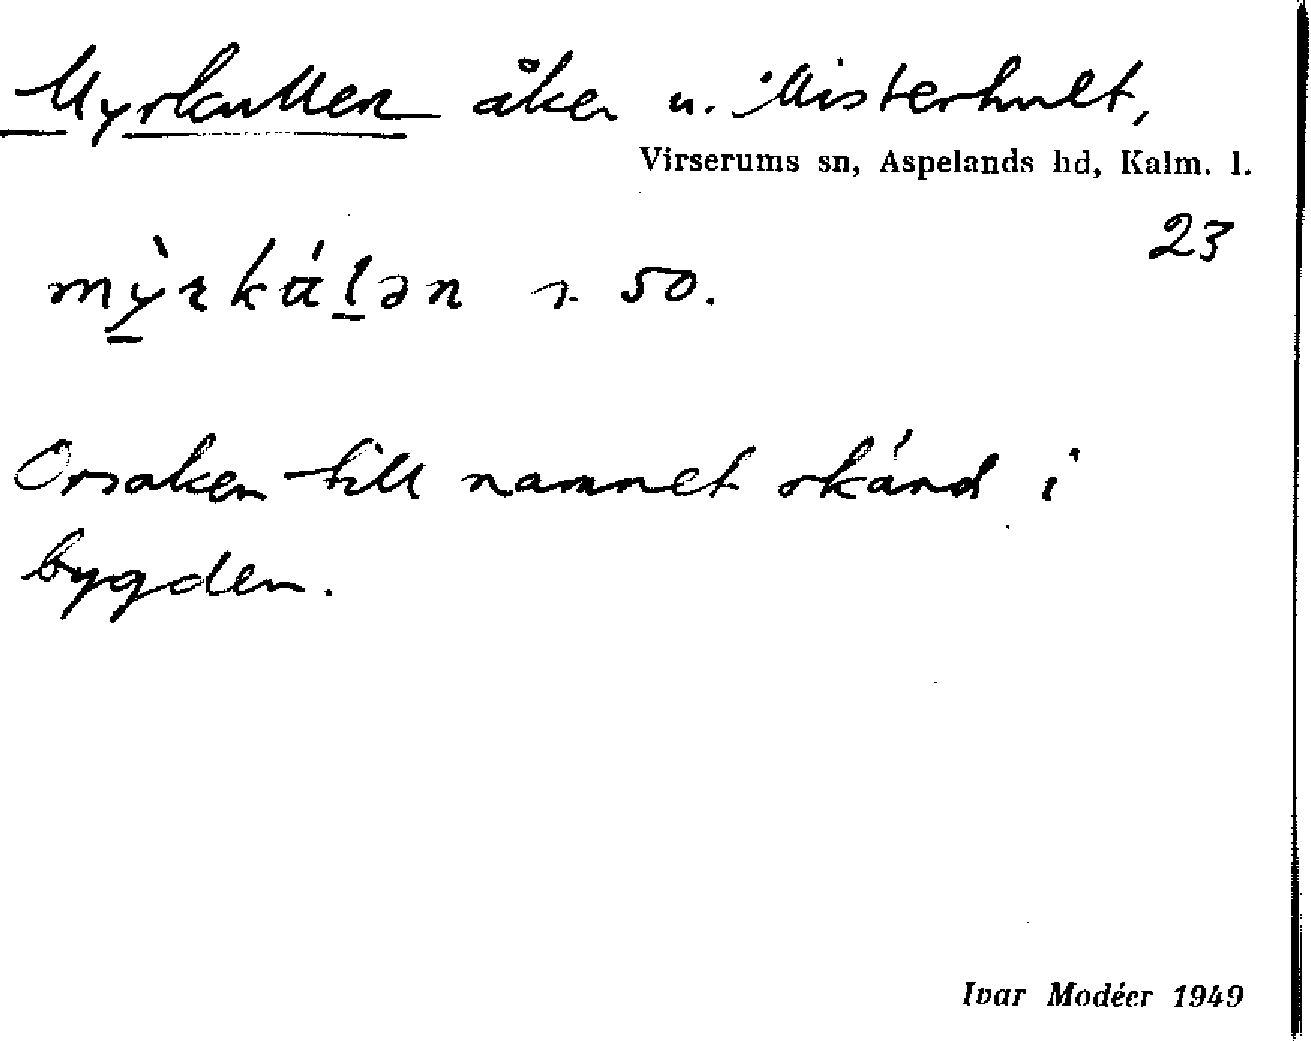 Myrkullen åker u. Misterhult,
Virserums sn, Aspelands hd, Kalm. l.
23
50.
Orsaken till namnet okänd i
bygden.
Ivar Modéer 1949